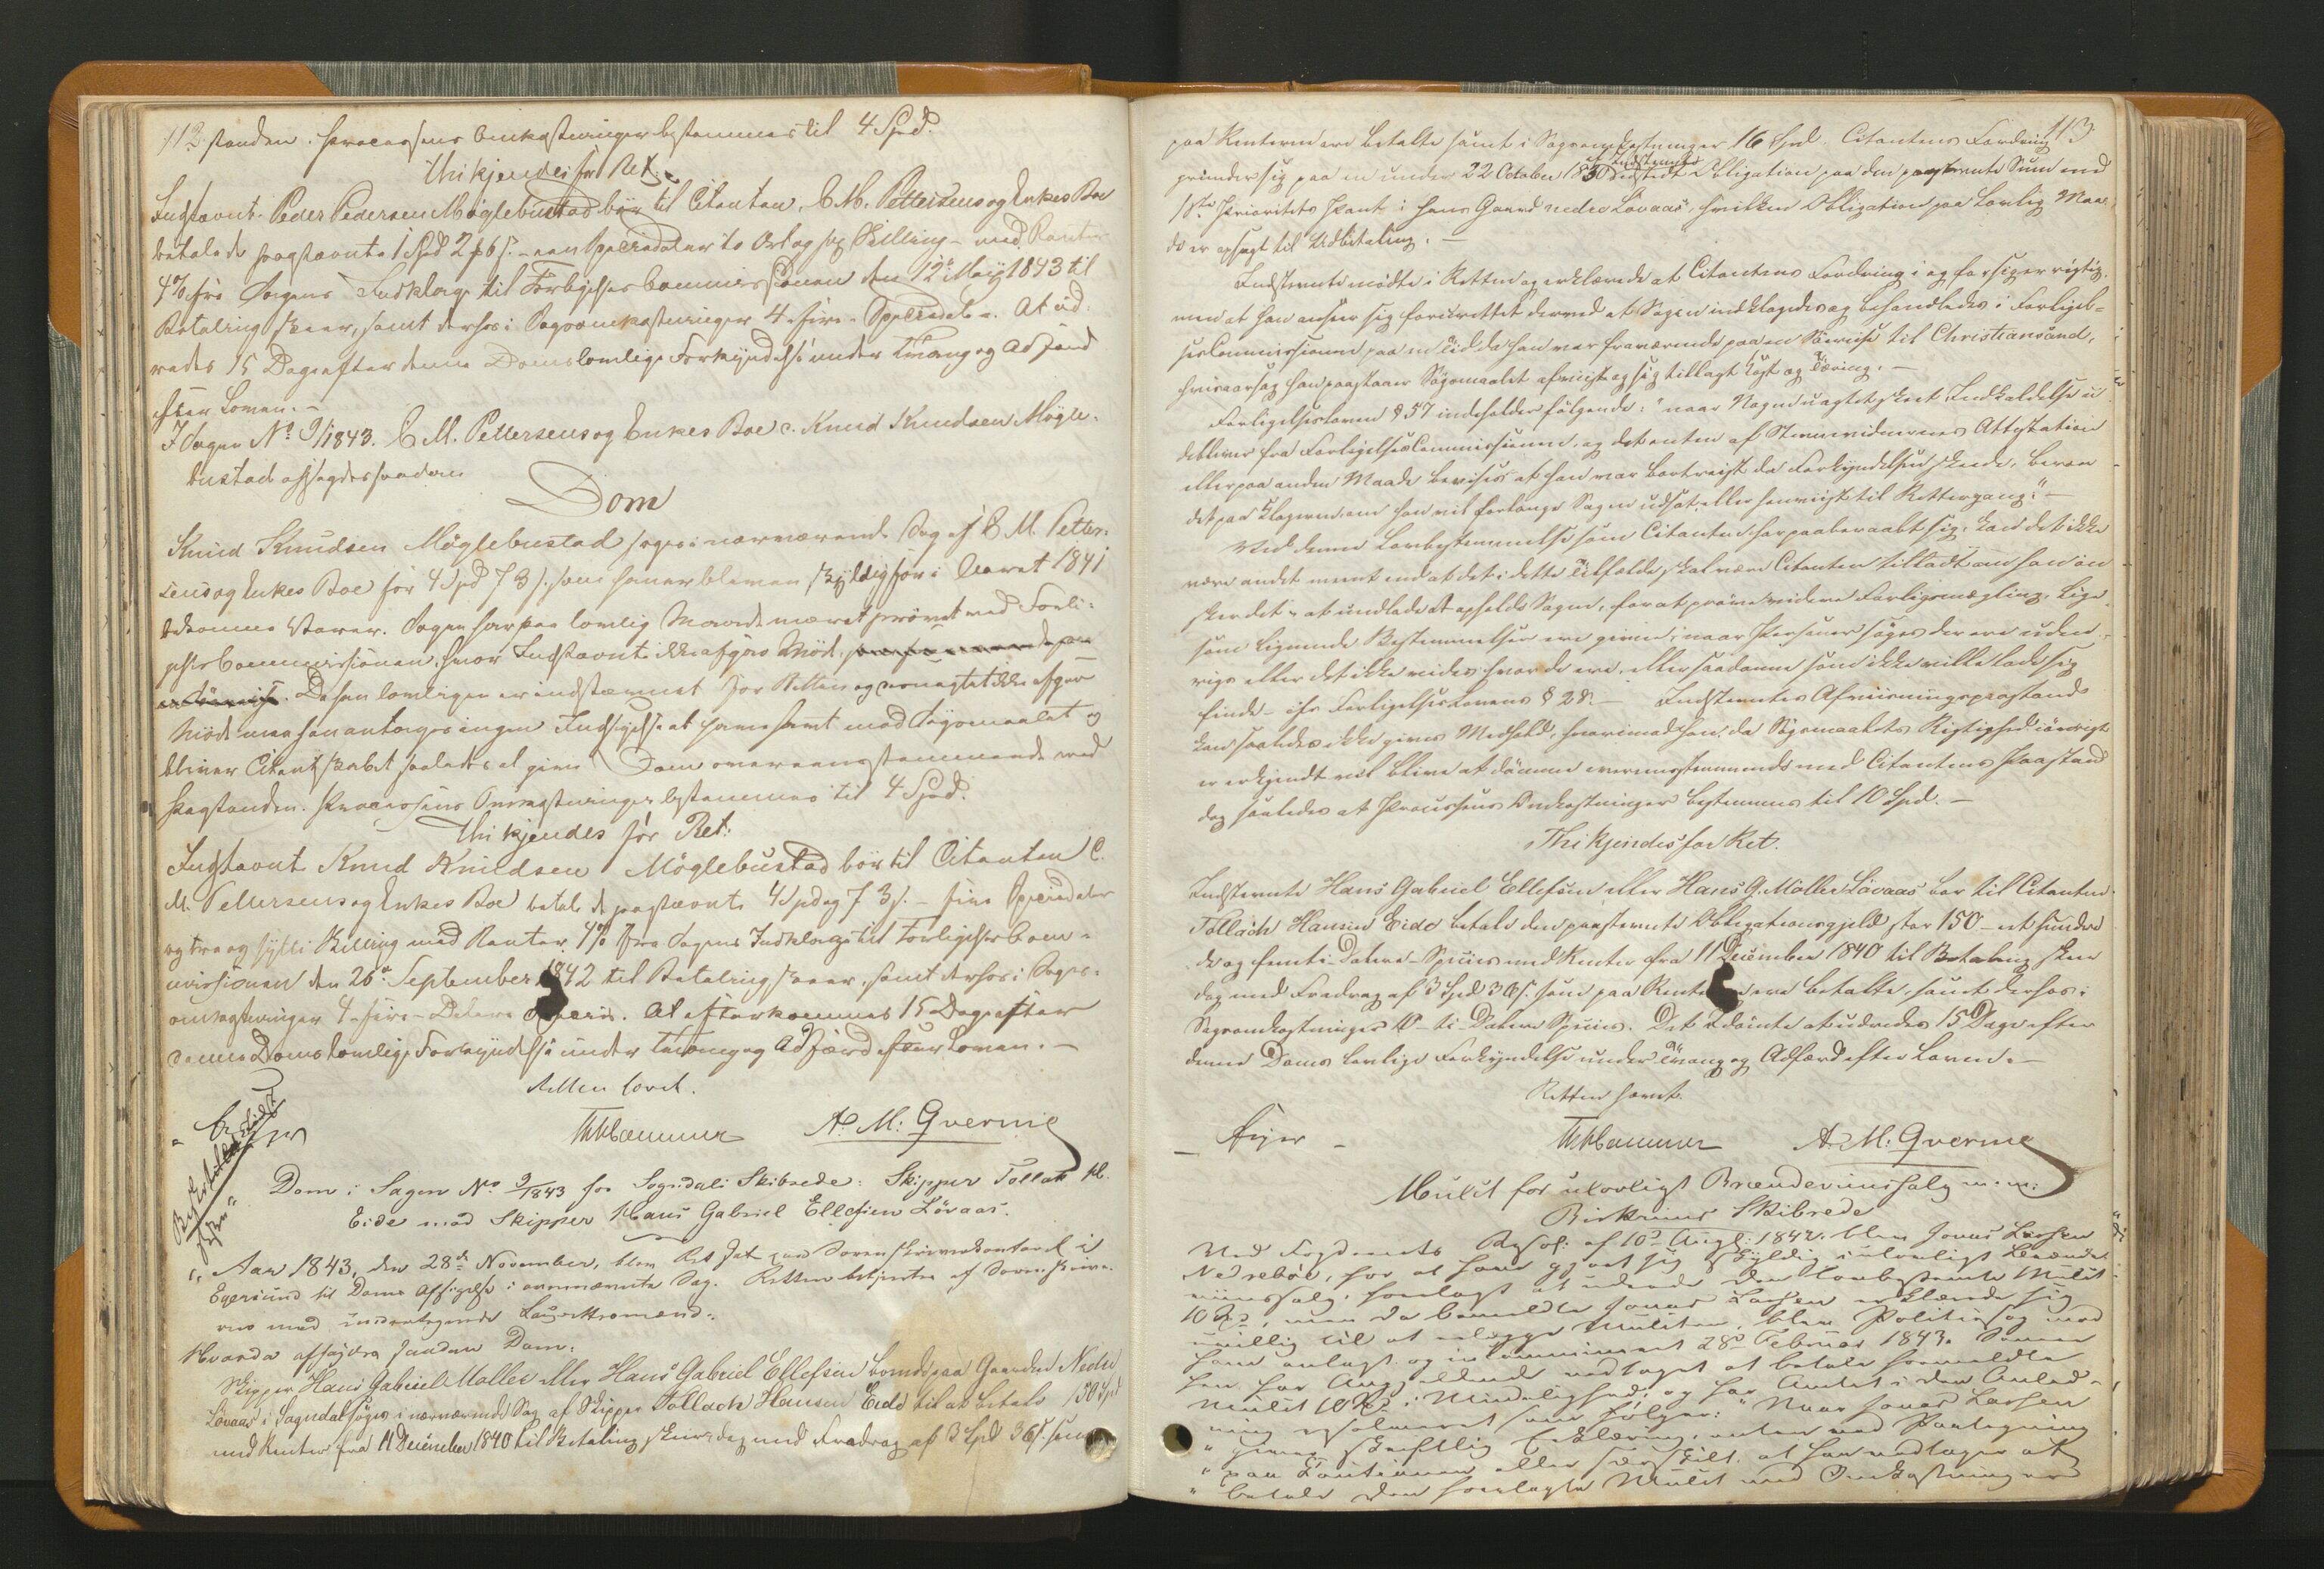 112. standen. Processens Omkostninger bestemmes til 4 Spd.
Thi kjendes for Ret:
Indstævnte Peder Pedersen Möglebustad bör til Citanten C. M. Pettersens og Enkes Boe
betale de paastævnte 1 Spd 2 ₰ 6 s. - een Speciedaler to Ort og sex Skilling - med Renter
4 % fra Sagens Indklage til Forligelses Commissionen den 12te May 1843 til
Betaling skeer, samt derhos i Sagsomkostninger 4 - fire - Speciedaler. At ud-
redes 15 Dage efter denne Doms lovlige Forkyndelse under Tvang og Adfærd
efter Loven. -
I Sagen No 9/1843. C. M. Pettersens og Enkes Boe c. Knud Knudsen Mögle-
bustad afsagdes saadan
Dom
Knud Knudsen Möglebustad söges i nærværende Sag af C. M. Petter-
sens og Enkes Boe for 4 Spd 73 s. som han er bleven skyldig for i Aaret 1841
bekomne Varer. Sagen har paa lovlig Maade været prövet ved Forli-
gelses Commissionen, hvor Indstævnte ikke afgav Möd.
Da han lovligen er indstævnet for Retten og uagtet ikke afgav
Möde maa han antages ingen Indsigelse at have havt mod Sögsmaalet og
bliver Citantskabet saaledes at give Dom overeensstemmende med
Paastanden. Processens Omkostninger bestemmes til 4 Spd.
Thi kjendes for Ret:
Indstævnte Knud Knudsen Möglebustad bör til Citanten C.
M. Pettersens og Enkes Boe betale de paastævnte 4 Spd og 73 s. - fire Speciedaler
og tre og sytti Skilling med Renter 4% fra Sagens Indklage til Forligelses Com-
missionen den 26de September 1842 til Betaling skeer, samt derhos i Sags-
omkostninger 4 - fire - Dalere Species. At efterkommes 15 Dage efter
denne Doms lovlige Forkyndelse under Tvang og Adfærd efter Loven. -
Retten hævet.
Feyer A. M: Qverme
Dom i Sagen No 9/1843 for Sogndals Skibrede: Skipper Tollak H.
Eide mod Skipper Hans Gabriel Ellefsen Lövaas.
Aar 1843, den 28de November, blev Ret sat paa Sorenskriverkontoret i
Egersund til Doms Afsigelse i ovennævnte Sag. Retten betjentes af Sorenskrive-
ren med undertegnede Laugrettesmænd.
Hvorda afsagdes saadan Dom:
Skipper Hans Gabriel Moller eller Hans Gabriel Ellefsen boende paa Gaarden Nedre
Lövaas i Sogndal söges i nærværende Sag af Skipper Tollach Hansen Eide til at betale 150 Spd
med Renter fra 11 December 1840 til Betaling skeer, dog med Fradrag af 3 Spd 36 s. som
113.
paa Renterne ere betalte samt i Sagsomkostninger 16 Spd. Citantens Fordring
grunder sig paa en under 22 October 1830 af Indstevnte udstedt Obligation paa den paastevnte Sum med
1ste Prioritets Pant i hans Gaard nedre Lövaas, hvilken Obligation paa lovlig Maa-
de er opsagt til Udbetaling. -
Indstevnte mödte i Retten og erklærede at Citantens Fordring i og for sig er rigtig,
men at han anseer sig forurettet derved at Sagen indklagedes og behandledes i Forligel-
sesCommissionen paa en Tid da han var fraværende paa en Söereise til Christiansand,
hvisaarsag han paastaaer Sögsmaalet afviist og sig tillagt Kost og Tæring. -
Forligelsesloven § 57 indeholder fölgende: "naar Nogen uagtet skeet Indkaldelse ud-
ebliver fra Forligelsescommissionen, og det enten af Stevnevidnernes Attestation
eller paa anden Maade bevises at han var bortreist da Forkyndelsen skede, beroer
det paa Klageren om han vil forlange Sagen udsat, eller henviist til Rettergang." -
Ved denne Lovbestemmelse som Citanten har paaberaabt sig, kan det ikke
være andet meent end at det i dette Tilfælde skal være Citanten tilladt om han ön-
sker det - at undlade at opholde Sagen, for at pröve videre Forligsmægling. Lige-
som lignende Bestemmelser ere givne, naar Personer söges der ere uden-
rigs eller det ikke vides hvor de ere, eller saadanne som ikke ville lade sig
finde - see Forligelseslovens § 28. - Indstevntes Afviisningspaastand
kan saaledes ikke gives Medhold, hvorimod han, da Sögsmaalets Rigtighed iövrigt
er erkjendt vil blive at dömme overensstemmende med Citantens Paastand
dog saaledes at Processens Omkostninger bestemmes til 10 Spd. -
Thi kjendes for Ret.
Indstevnte Hans Gabriel Ellefsen eller Hans G. Möller Lövaas bör til Citanten
Tollach Hansen Eide betale den paastevnte Obligationsgjeld, stor 150 - et hundre-
de og femti - Dalere Species med Renter fra 11 December 1840 til Betaling skeer
dog med Fradrag af 3 Spd 36 s. som paa Renterne ere betalte, samt derhos i
Sagsomkostninger 10 - ti - Dalere Species. Det Idömte at udredes 15 Dage efter
denne Doms lovlige Forkyndelse under Tvang og Adfærd efter Loven. -
Retten hævet.
Feyer A. M. Qverme
Mulct for ulovligt Brændeviinssalg m: m:
Birkrems Skibrede
Ved Fogderiets Resol: af 10de Augt: 1842 blev Jonas Larsen
Nedrebö, for at have gjort sig skyldig i ulovligt Brænde-
viinssalg, forelagt at udrede den lovbestemte Mulct
10 Spd, men da bemeldte Jonas Larsen erklærede sig
uvillig til at erlægge Mulcten, blev Politiesag mod
ham anlagt og incamineret 28de Februar 1843. Senere
har han Ang: eldende vedtaget at betale formeldte
Mulct 10 Spd i Mindelighed; og har Amtet i den Anled-
ning resolveret som fölger: "Naar Jonas Larsen
" giver skriftlig Erklæring, enten ved Paategning
" paa Qvitteringen eller særskilt, at han vedtager at
" betale den forelagte Mulct med Omkostningerne